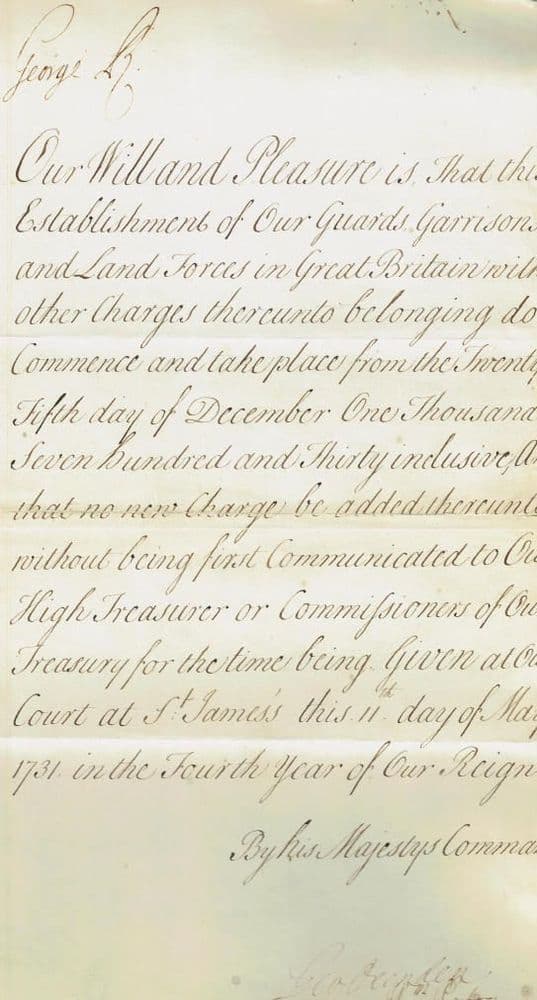 George R.
Our Will and Pleasure is, That this
Establishment of Our Guards, Garrisons
and Land Forces in Great Britain with
other Charges thereunto belonging do
Commence and take place from the Twenty
Fifth day of December One Thousand
Seven hundred and Thirty inclusive, An
that no new Charge be added thereunto
without being first Communicated to Ou
High Treasurer or Commissioners of Ou
Treasury for the time being. Given at Ou
Court at St. James's this 11th day of May
1731. in the Fourth Year of Our Reign
By his Majestys Comman